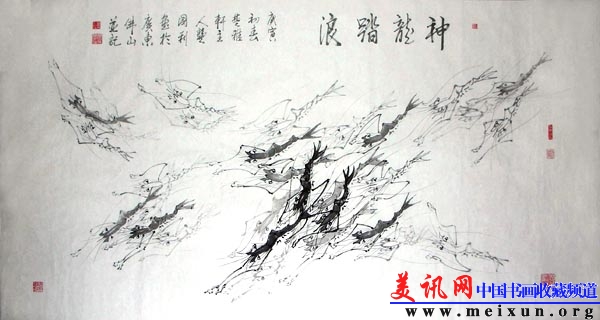 神龍踏浪
庚寅
初春
楚雅
軒主
人樊
國利
於
廣東
佛山
並記
美讯网 中国书画收藏频道
www.meixun.org